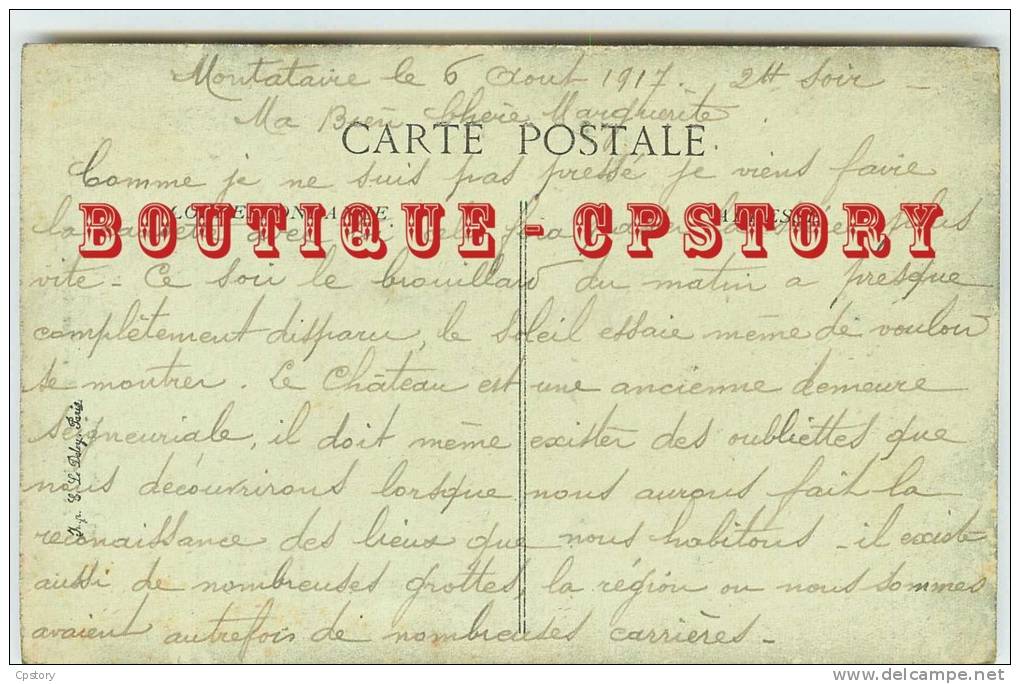 Montataire le 6 Aout 1917. 2H soir -
Ma Bien Chère Marguerite
CARTE POSTALE
Comme je ne suis pas pressé je viens faire
BOUTIQUE - CPSTORY
la plus
vite - Ce soir le brouillard du matin a presque
complètement disparu, le soleil essaie même de vouloir
se montrer. Le Château est une ancienne demeure
seigneuriale, il doit même exister des oubliettes que
nous découvrirons lorsque nous aurons fait la
reconaissance des lieux que nous habitons - il existe
aussi de nombreuses grottes, la région ou nous sommes
avaient autrefois de nombreuses carrières -
Imp. E. Le Deley, Paris.
Cpstory
www.delcampe.net